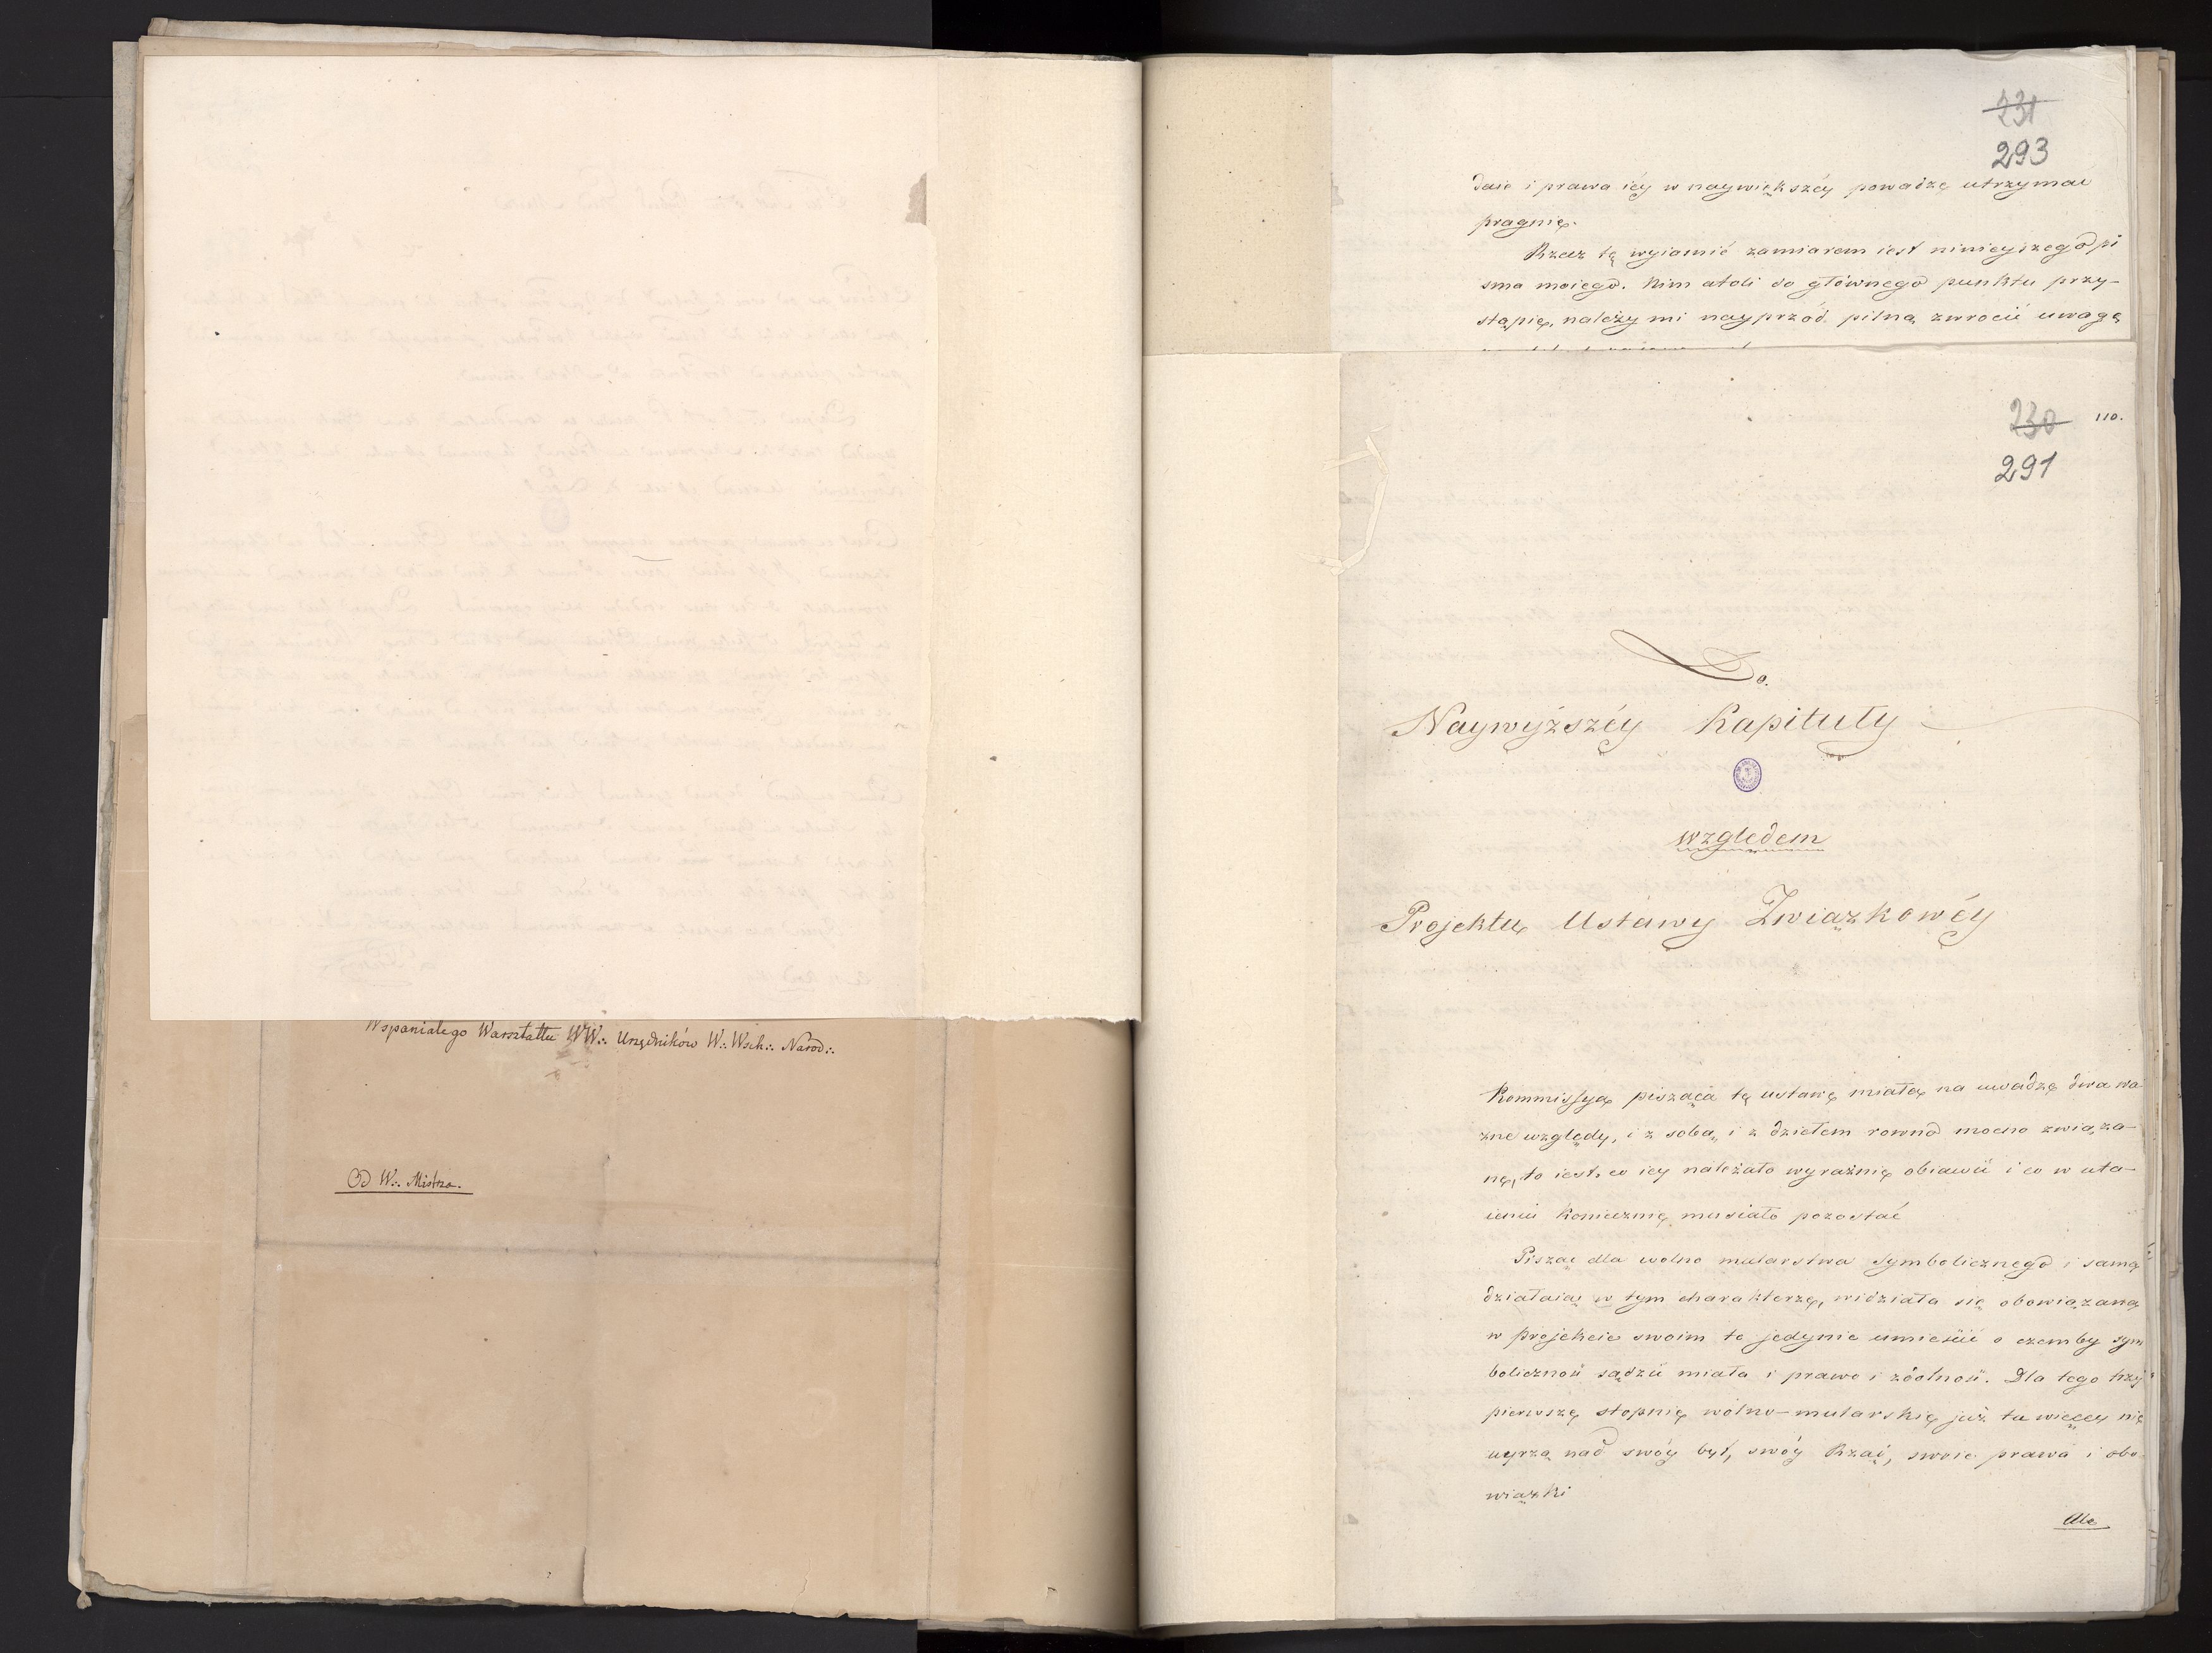 Wspaniałego Warsztattu WW∴ Urzędników W∴ Wsch∴ Narod∴
Od W∴ Mistrza.
231
293
daie i prawa iéy w naywiększéy powadzę utrzymać
pragnię.
Rzecz tę wyiaśnić zamiarem iest ninieyszego pi
sma moiego. Nim atoli do głównego punktu przy-
stąpię, należy mi nayprzód pilną zwrócić uwagę
230 110.
291
Do.
Naywyższéy Kapituły
względem
Projektu Ustawy Związkowéy
Kommissya pisząca tę ustawę miała na uwadzę dwa wa
żne względy, i z sobą, i z dziełem rowno mocno związa-
nę, to iest. co iey należało wyraźnię obiawić i co w uta-
ieniu koniecznię musiało pozostać
Pisząc dla wolno mularstwa symbolicznego i samą
działaiąc w tym charakterzę, widziała się obowiązaną
w projekcie swoim to jedynie umieścić o czemby sym
boliczność sądzić miała i prawo i zdolność. Dla tego trzy
pierwszę stopnię wolno-mularskię już tu więcey nię
uyrzą nad swóy byt, swóy Rząd, swoie prawa i obo-
wiązki
Ale